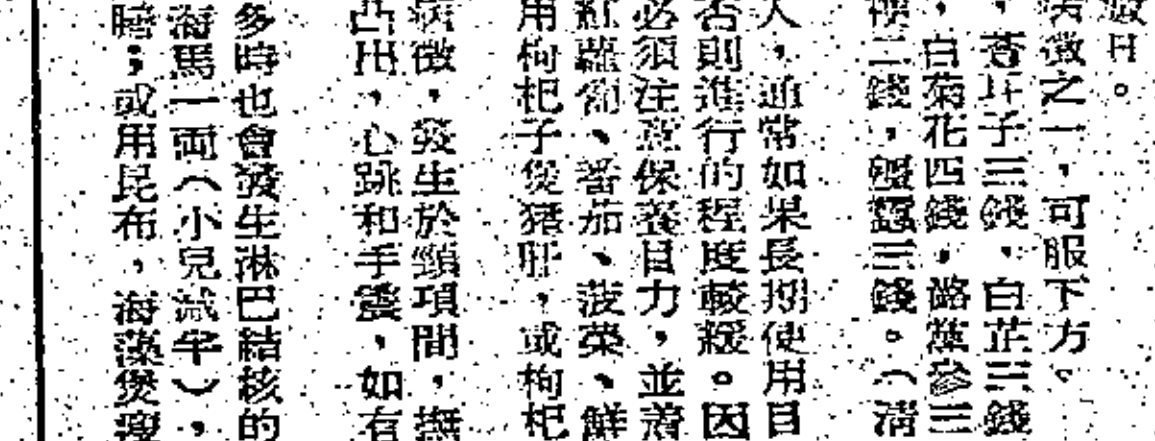 日。
徵之一，可服下方。
，蒼耳子三錢，白芷三錢
，白菊花四錢，潞黨參三
二錢，殭蠶三錢。（清
人，通常如果長期使用目
否則進行的程度較緩。因
必須注意保養目力，並着
紅蘿蔔、番茄、菠菜、鮮
用枸杞子煲猪肝，或枸杞
病徵，發生於頸項間，撫
凸出，心跳和手震，如有
多時也會發生淋巴結核的
海馬一両（小兒減半），
；或用昆布，海藻煲瘦